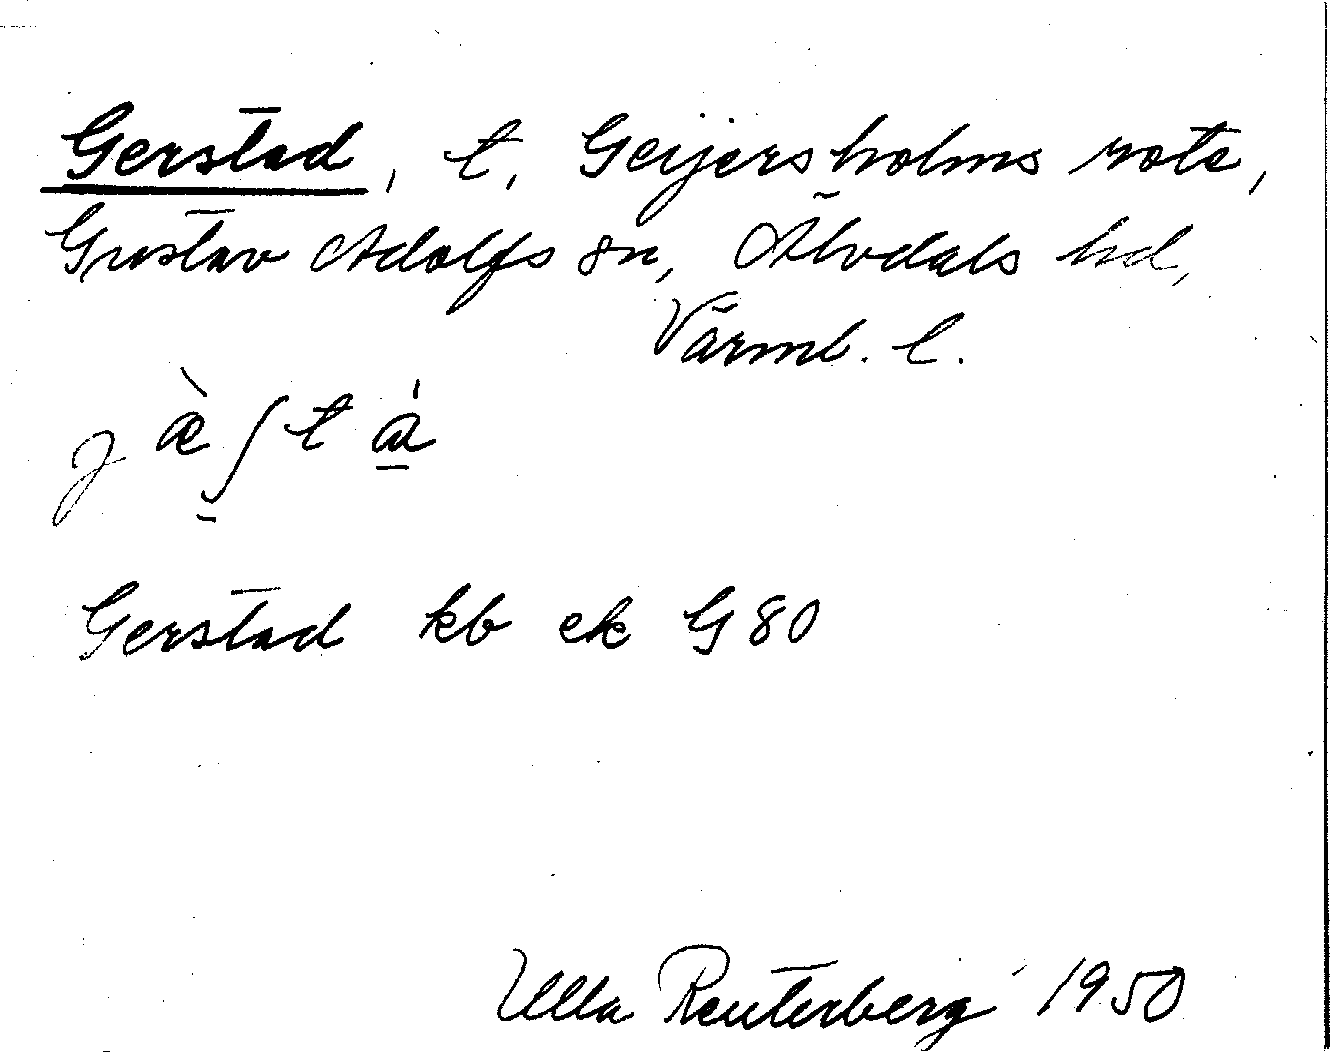 Gerstad, t, Geijersholms rote,
Gustav Adolfs sn, Älvdals hd,
Värml. l.
j æ̀ ʃ t á̱
Gerstad kb ek G 80
Ulla Reuterberg 1950